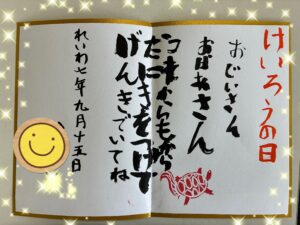 けいろうの日
おじいさん
おばあさん
これからもからだ
にきをつけて
げんきでいてね
れいわ七年九月十五日